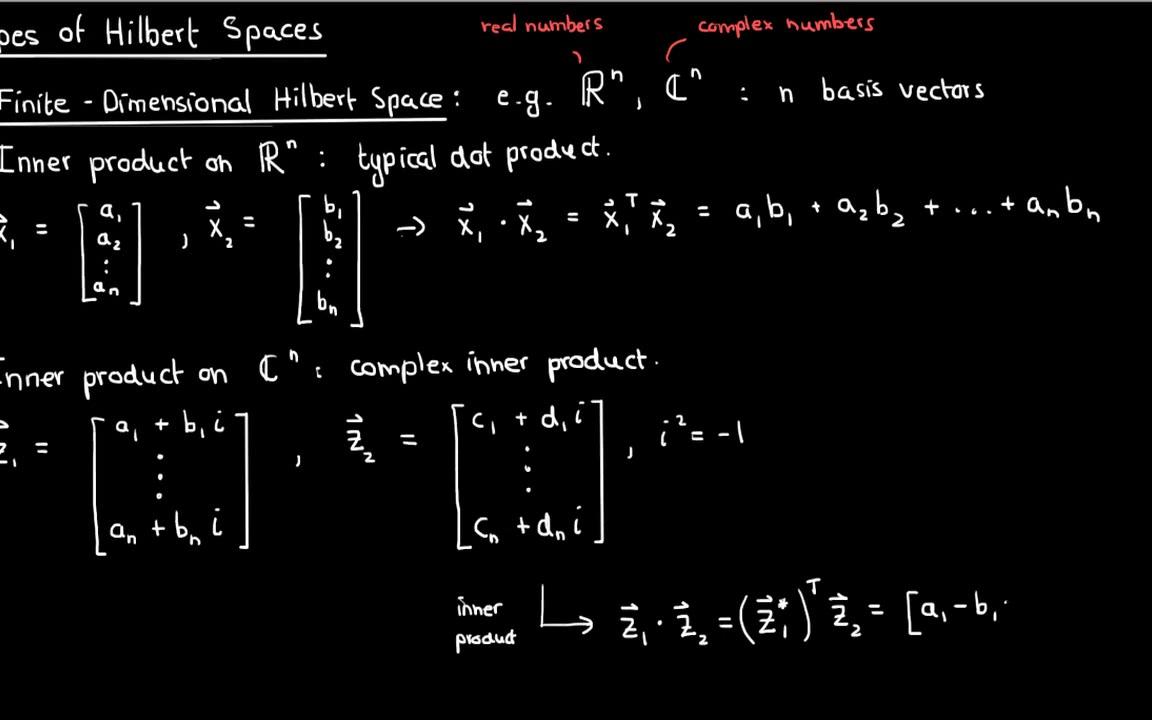 pes of Hilbert Spaces
real numbers
complex numbers
Finite - Dimensional Hilbert Space : e.g. ℝⁿ, ℂⁿ : n basis vectors
Inner product on ℝⁿ : typical dot product.
x⃗₁ = [a₁ a₂ ⋮ aₙ] , x⃗₂ = [b₁ b₂ ⋮ bₙ] → x⃗₁ · x⃗₂ = x⃗₁ᵀ x⃗₂ = a₁b₁ + a₂b₂ + ... + aₙbₙ
Inner product on ℂⁿ : complex inner product.
z⃗₁ = [a₁ + b₁i ⋮ aₙ + bₙi] , z⃗₂ = [c₁ + d₁i ⋮ cₙ + dₙi] , i² = -1
inner product → z⃗₁ · z⃗₂ = (z⃗₁*)ᵀ z⃗₂ = [a₁ - b₁